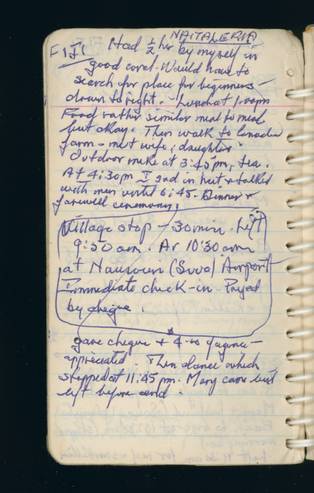 NAITALERIA
FIJI Had 1/2 hr by myself in
good coral. Would have to
search for place for beginners -
down to right. Lunch at 1.00pm
Food rather similar meal to meal
but okay. Then walk to
farm - met wife, daughter.
Outdoor at 3:45pm, tea.
At 4:30pm I sat in hut & talked
with men until 6:45. Dinner &
farewell ceremony,
Village stop - 30 min. Left
9:50 am. Ar 10:30 am
at Nausori (Suva) Airport
Immediate check-in. Payed
by cheque.
gave cheque & yaqona -
appreciated. Then dance which
stopped at 11:45 pm. Many came but
left before end.